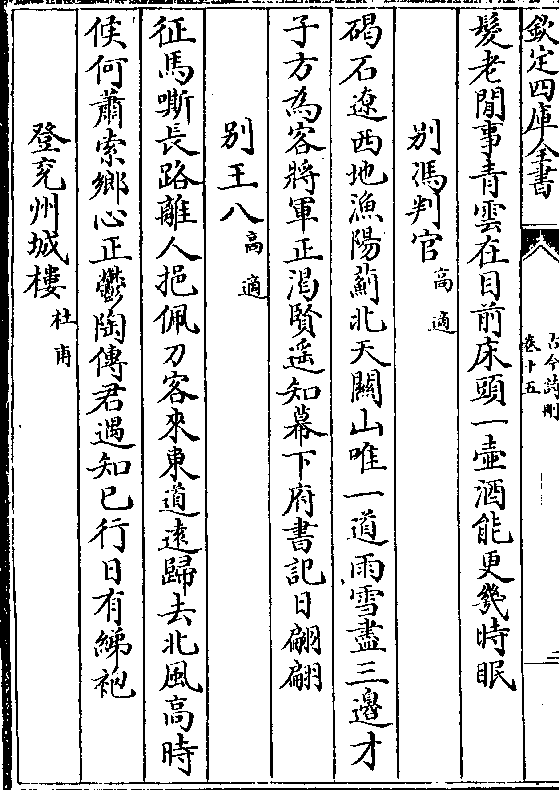 欽定四庫全書
古今詩刪
卷十五
髮老閒事青雲在目前床頭一壺酒能更幾時眠
别馮判官 高適
碣石遼西地漁陽薊北天關山唯一道雨雪盡三邊才
子方為客將軍正渴賢遥知幕下府書記日翩翩
别王八 高適
征馬嘶長路離人挹佩刀客來東道逺歸去北風高時
候何蕭索鄉心正鬱陶傳君遇知已行日有綈袍
登兖州城樓 杜甫